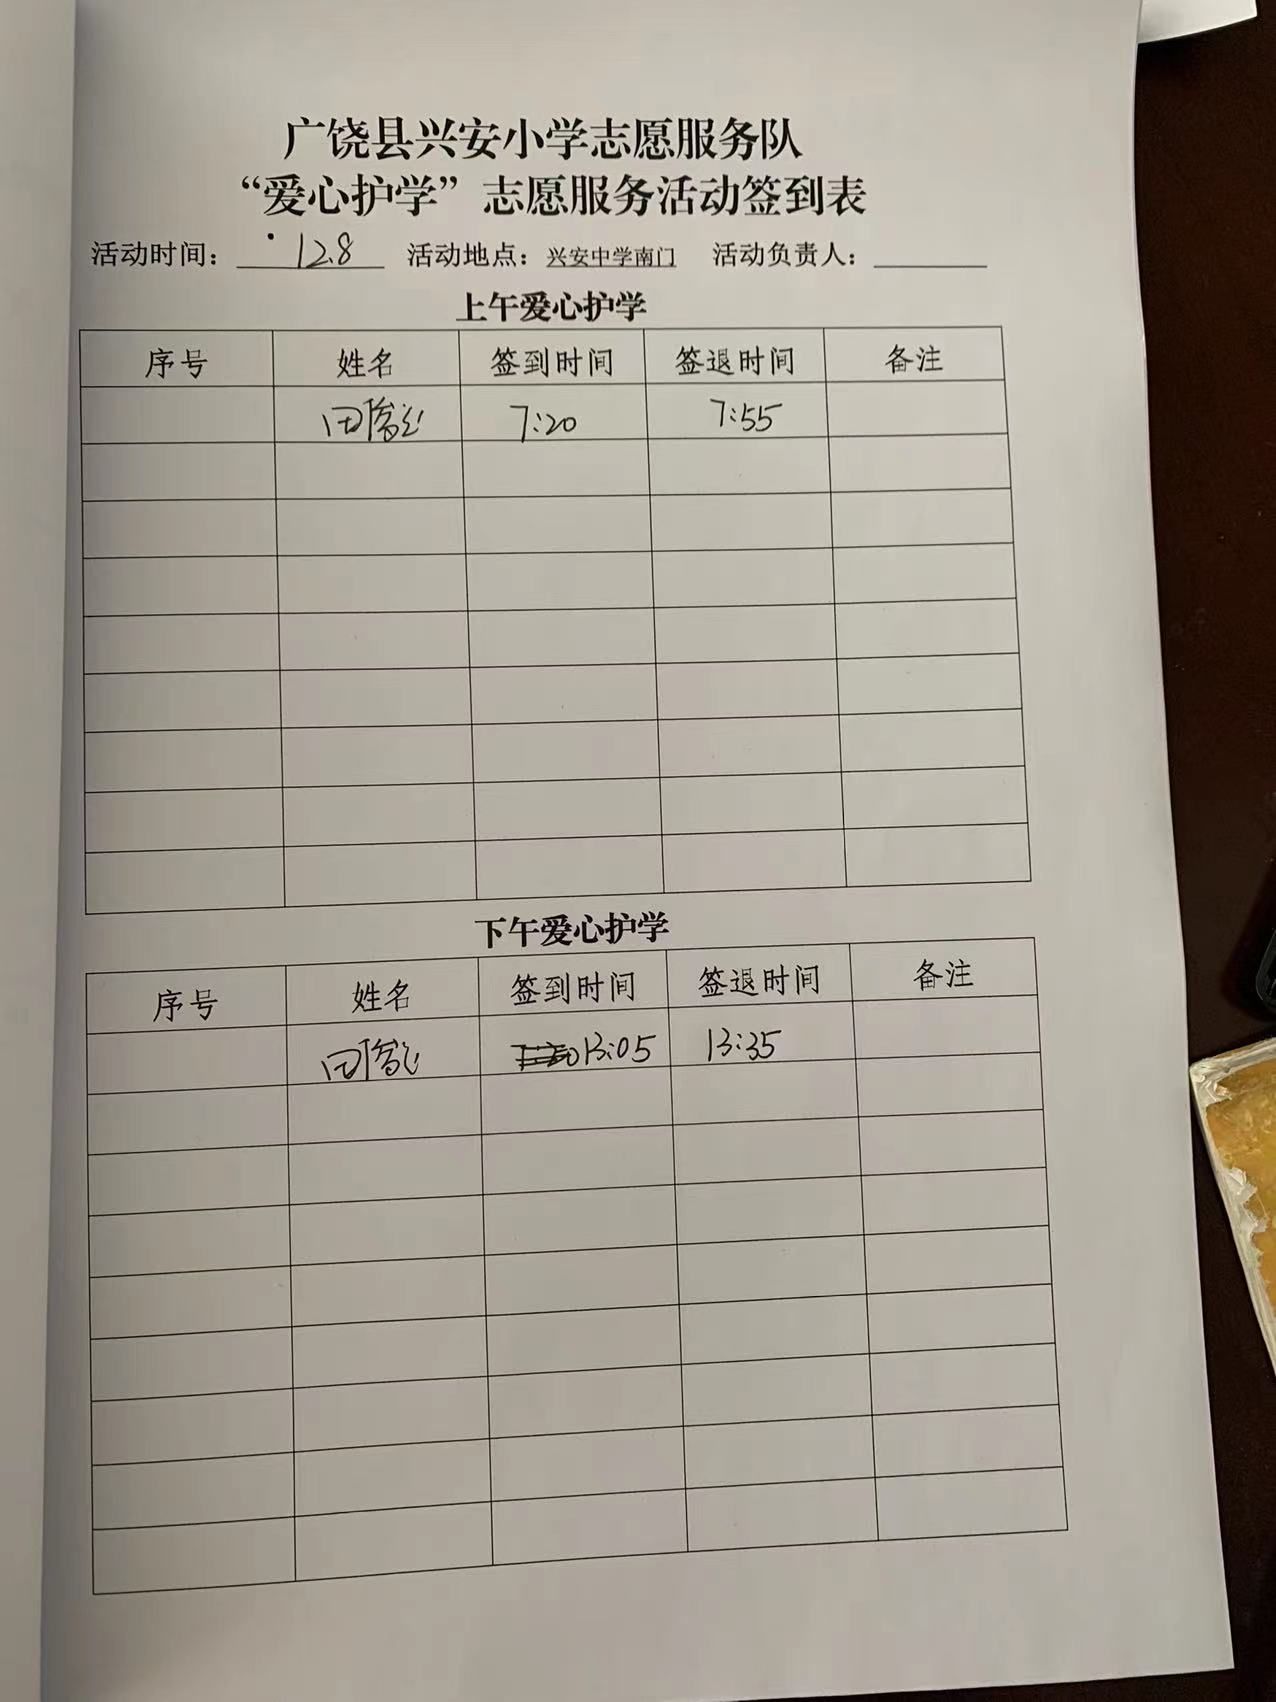 广饶县兴安小学志愿服务队
“爱心护学”志愿服务活动签到表
活动时间： 12.8 活动地点：兴安中学南门 活动负责人：
上午爱心护学
序号 姓名 签到时间 签退时间 备注
田 7:20 7:55
下午爱心护学
序号 姓名 签到时间 签退时间 备注
田 13:05 13:35